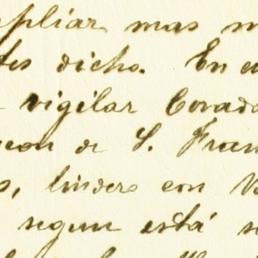 mpliar mas m
tes dicho. En e
vigilar Corado
eon de S. Fran
s, lindero con V
segun está s